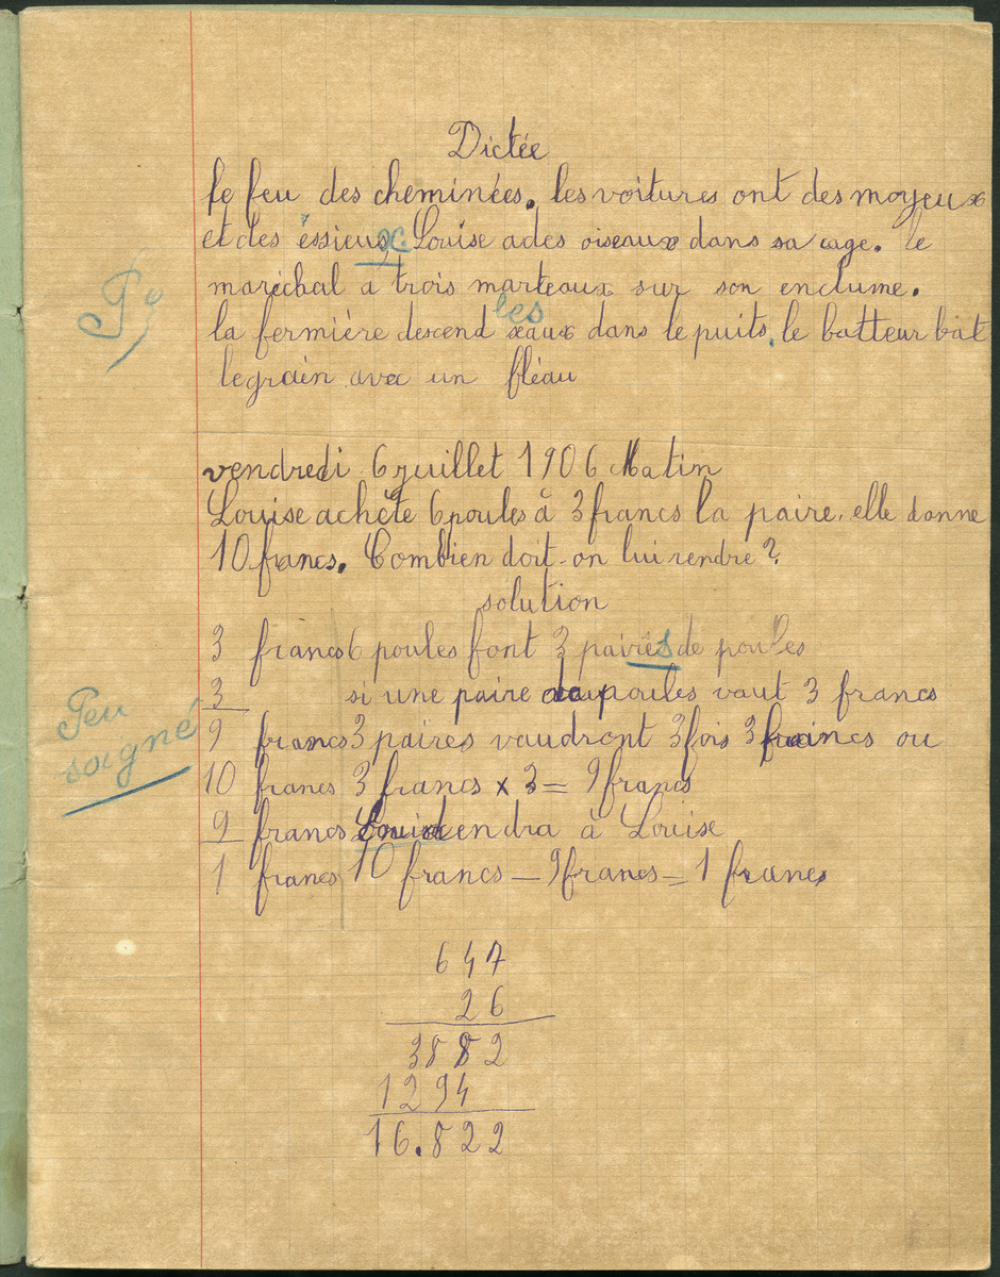 Dictée
le feu des cheminées. les voitures ont des moyeux
et des éssieux. Louise a des oiseaux dans sa cage. le
maréchal a trois marteaux sur son enclume.
la fermière descend les seaux dans le puits, le batteur bat
le grain avec un fléau
vendredi 6 juillet 1906 Matin
Louise achète 6 poules à 3 francs la paire. elle donne
10 francs. Combien doit-on lui rendre ?
solution
3 francs 6 poules font 3 paires de poules
3 si une paire de poules vaut 3 francs
Peu
soigné
9 francs 3 paires vaudront 3 fois 3 francs ou
10 francs 3 francs x 3 = 9 francs
9 francs rendra à Louise
1 francs 10 francs - 9 francs = 1 francs
647
26
3882
1294
16.822